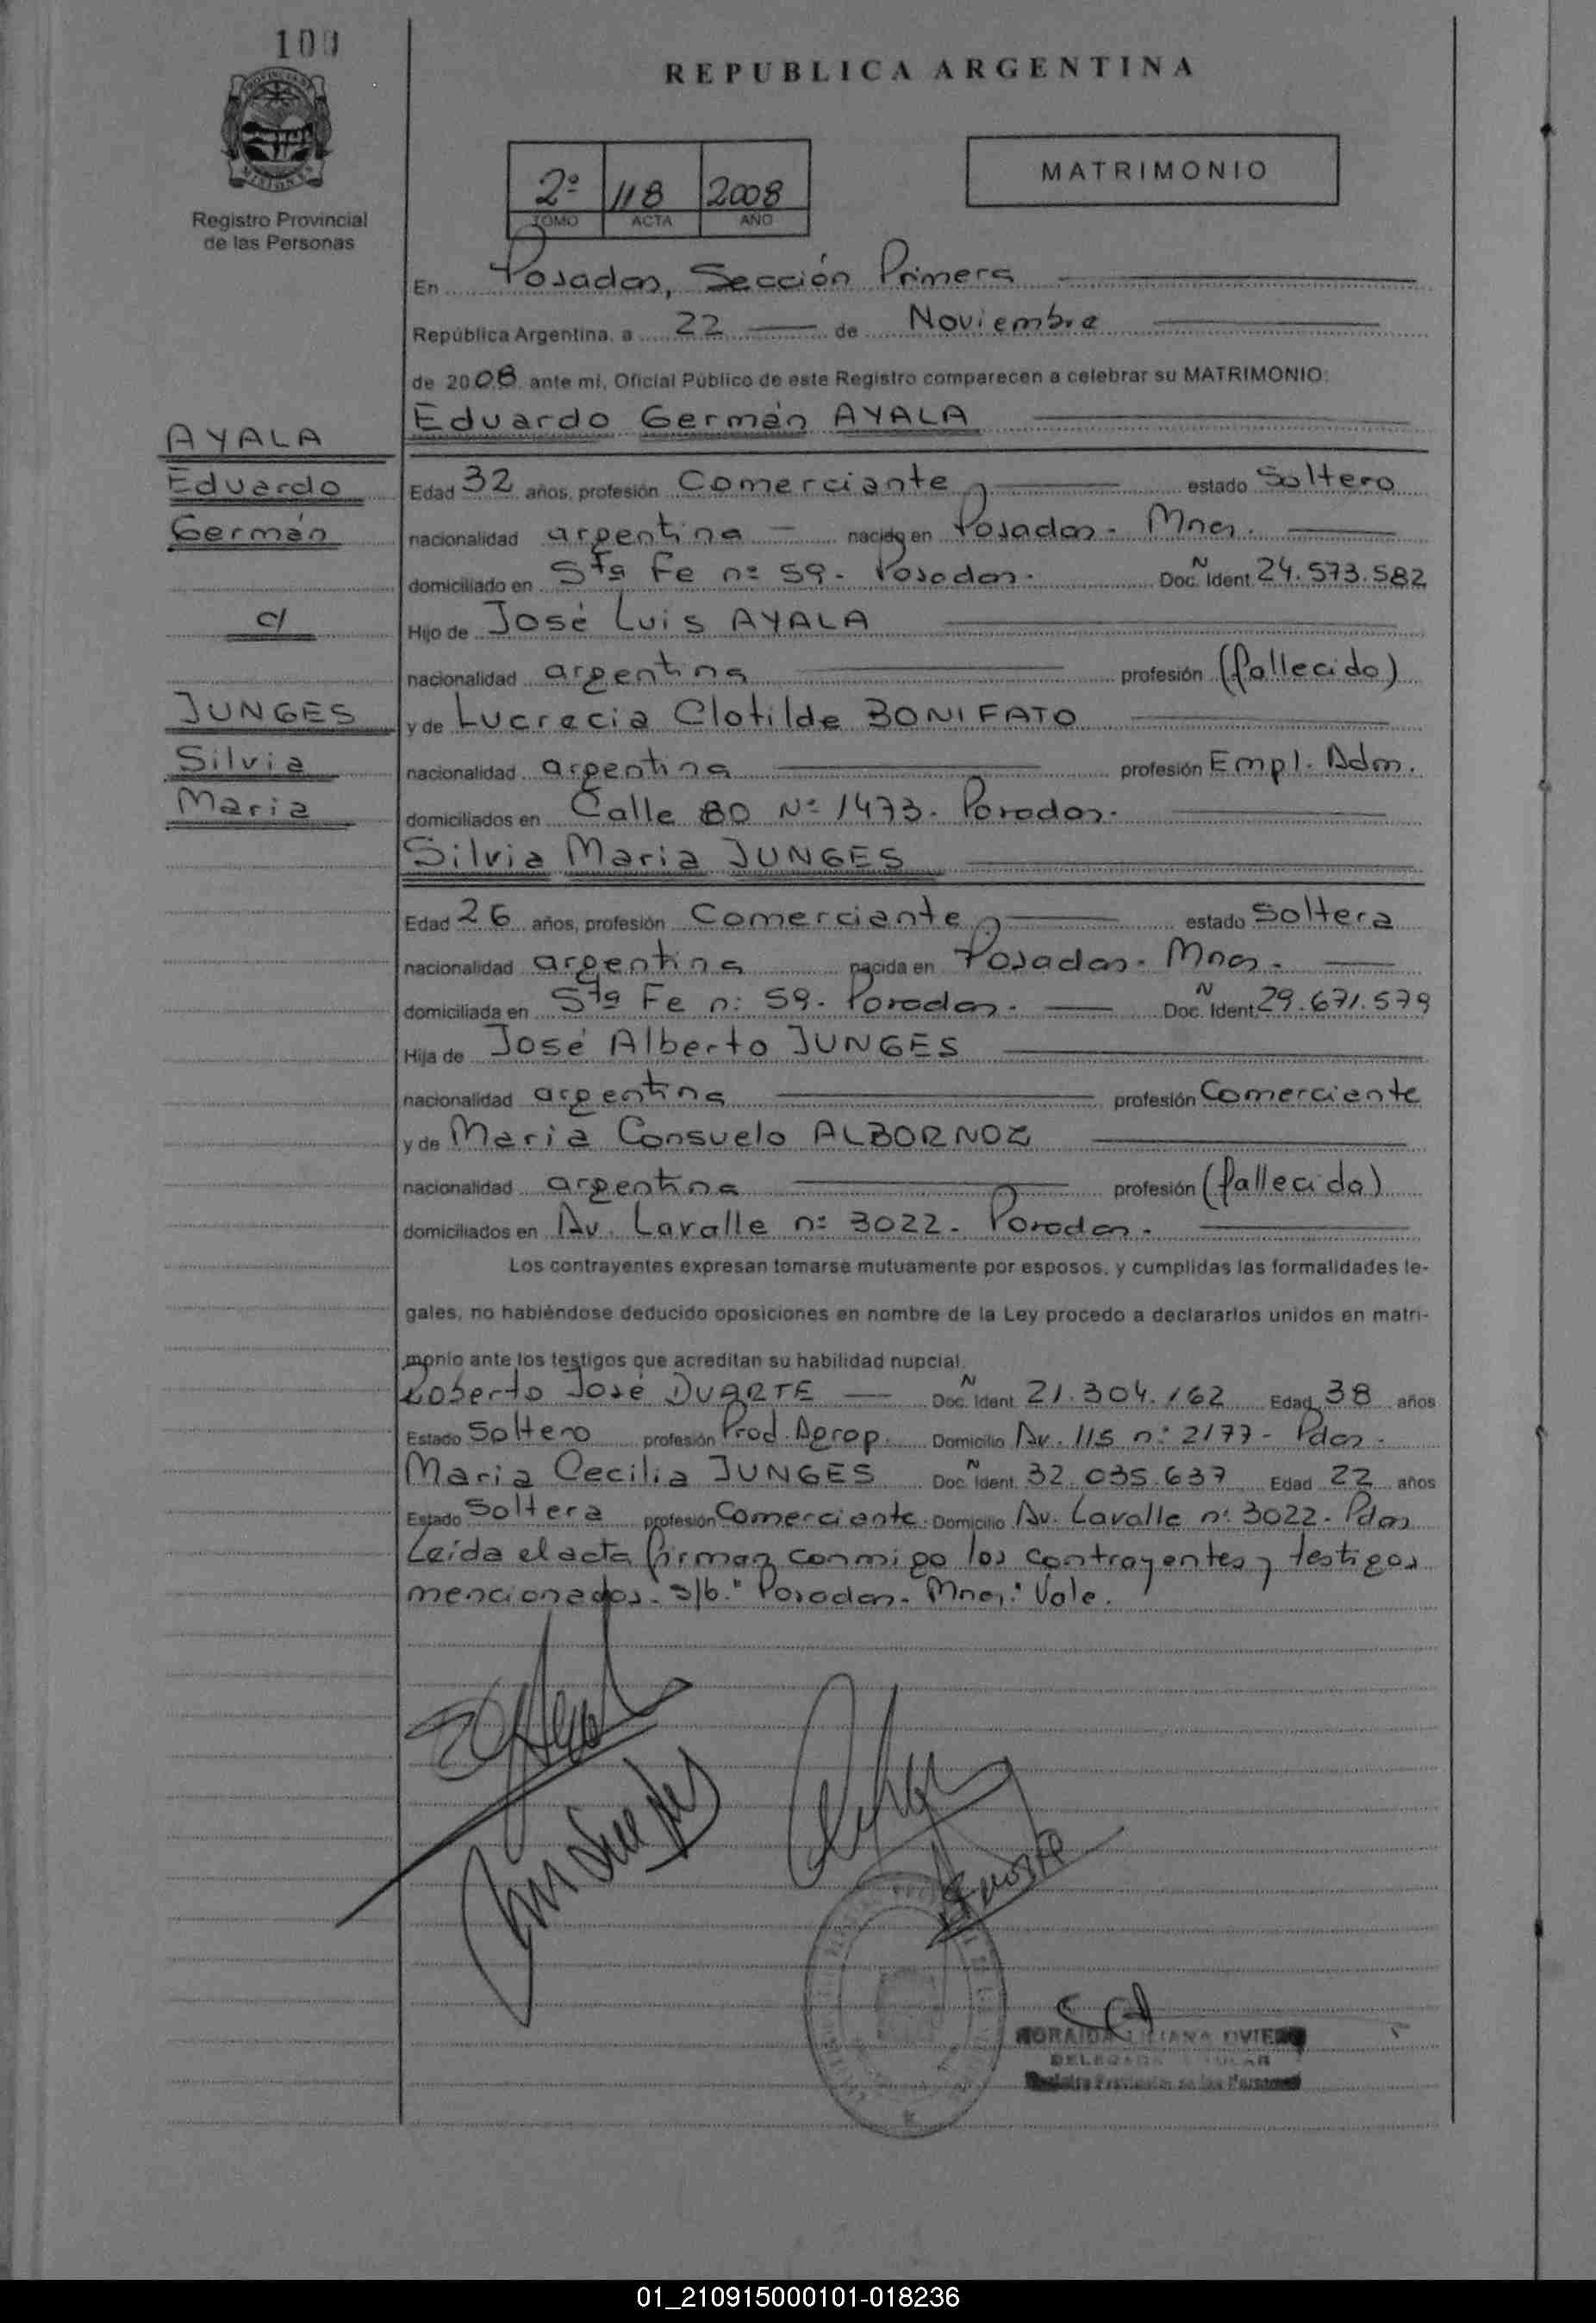 REPUBLICA ARGENTINA
Registro Provincial
de las Personas
2º 118 2008
TOMO ACTA AÑO
MATRIMONIO
En Posadas, Sección Primera
República Argentina, a 22 de Noviembre
de 2008 ante mi, Oficial Público de este Registro comparecen a celebrar su MATRIMONIO:
Eduardo Germán AYALA
AYALA
Eduardo
Germán
c/
JUNGES
Silvia
Maria
Edad 32 años, profesión Comerciante estado Soltero
nacionalidad argentina nacido en Posadas - Mnes.
domiciliado en Sta Fe nº 59 - Posadas. Doc. N Ident. 24.573.582
Hijo de José Luis AYALA
nacionalidad argentina profesión (fallecido)
y de Lucrecia Clotilde BONIFATO
nacionalidad argentina profesión Empl. Adm.
domiciliados en Calle 80 Nº 1473 - Posadas.
Silvia Maria JUNGES
Edad 26 años, profesión Comerciante estado Soltera
nacionalidad argentina nacida en Posadas - Mnes -
domiciliada en Sta Fe nº 59 - Posadas - Doc. N Ident. 29.671.579
Hija de José Alberto JUNGES
nacionalidad argentina profesión Comerciante
y de Maria Consuelo ALBORNOZ
nacionalidad argentina profesión (fallecida)
domiciliados en Av. Lavalle nº 3022 - Posadas -
Los contrayentes expresan tomarse mutuamente por esposos, y cumplidas las formalidades le-
gales, no habiéndose deducido oposiciones en nombre de la Ley procedo a declararlos unidos en matri-
monio ante los testigos que acreditan su habilidad nupcial.
Roberto José DUARTE Doc. N Ident. 21.304.162 Edad 38 años
Estado Soltero profesión Prod. Agrop. Domicilio Av. 115 nº 2177 - Pdas.
Maria Cecilia JUNGES Doc. N Ident. 32.035.637 Edad 22 años
Estado Soltera profesión Comerciante. Domicilio Av. Lavalle nº 3022 - Pdas
Leída el acta firman conmigo los contrayentes y testigos
mencionados. s/b: "Posadas - Mnes": Vale.
LILIANA
Registro Provincial de las Personas
01_210915000101-018236